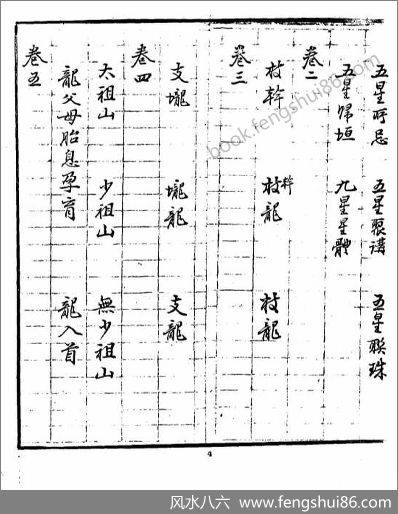 五星所忌　五星聚講　五星聯珠
五星歸垣　九星星體
卷二
枝幹　枝幹龍　枝龍
卷三
支壠　壠龍　支龍
卷四
太祖山　少祖山　無少祖山
龍父母胎息孕育　龍入首
卷五
4
book.fengshui86.com
风水八六－www.fengshui86.com